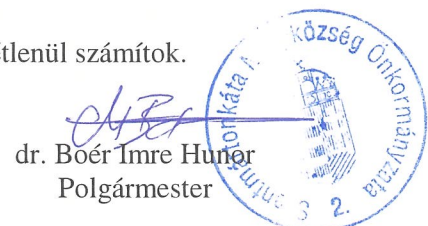 étlenül számítok.
dr. Boér Imre Hunor
Polgármester
község Önkormányzata
2.